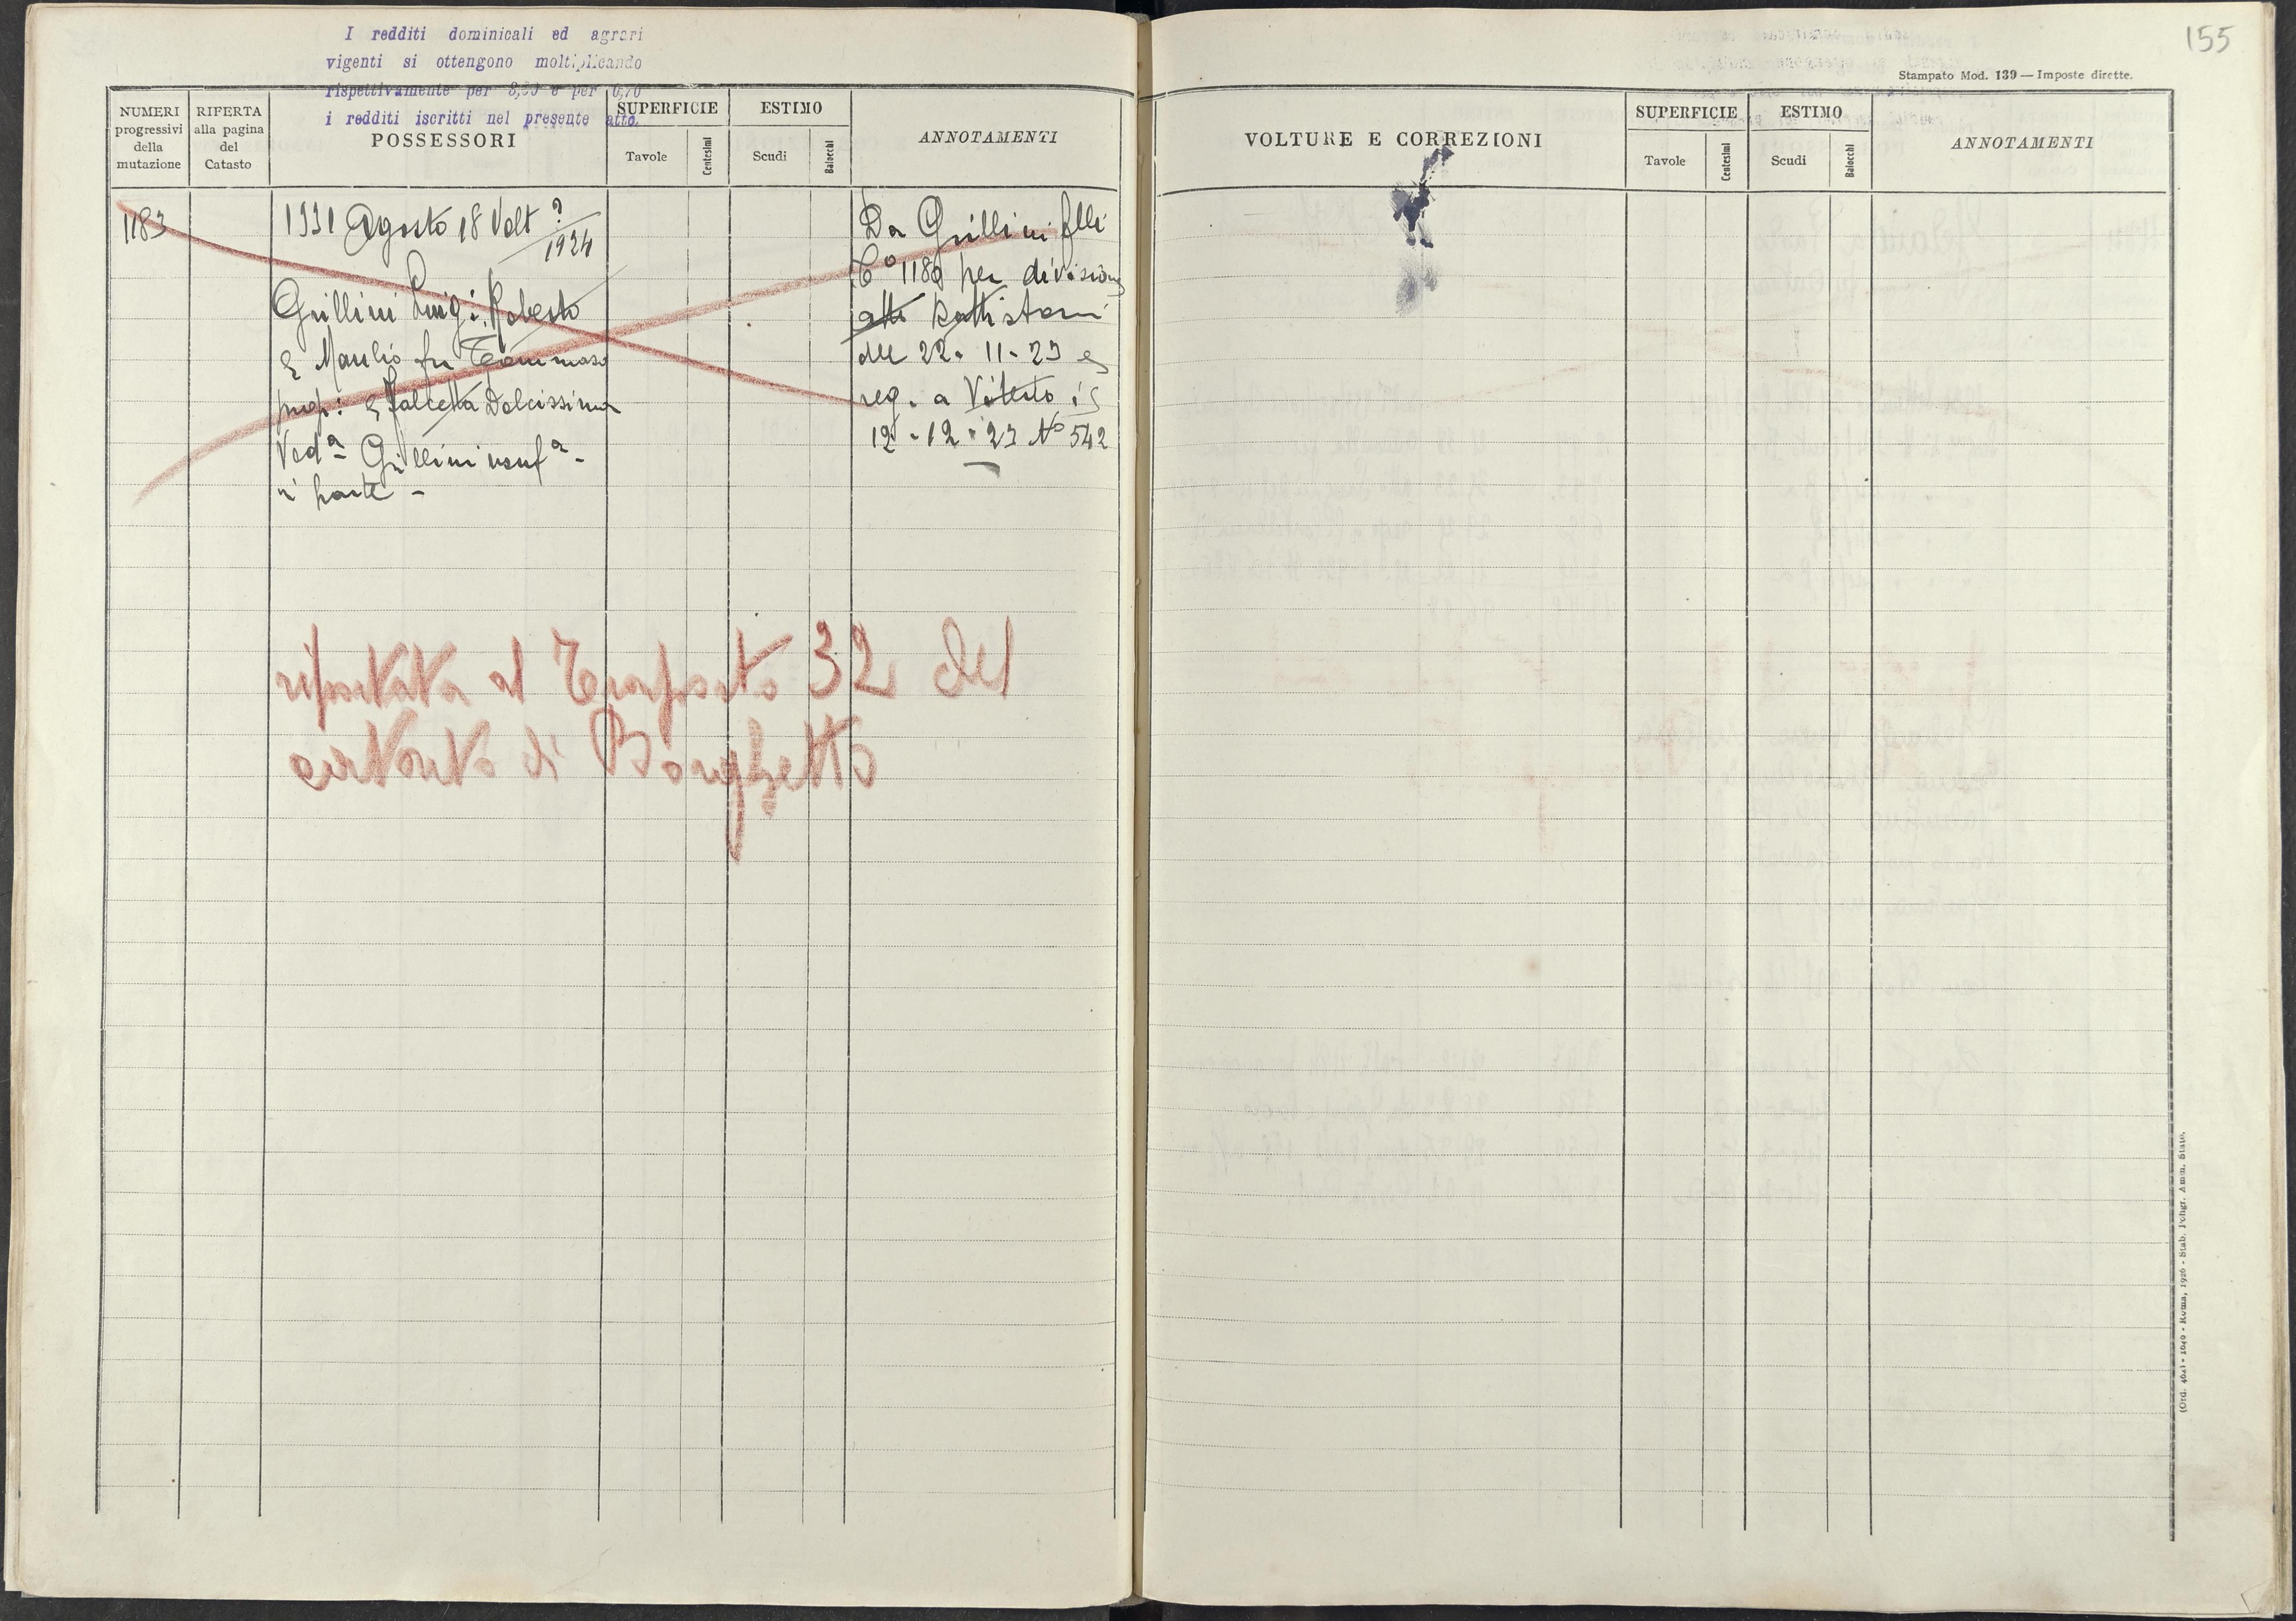 I redditi dominicali ed agrari
vigenti si ottengono moltiplicando
rispettivamente per e per
i redditi iscritti nel presente atto.
NUMERI
progressivi
della
mutazione
RIFERTA
alla pagina
del
Catasto
POSSESSORI
SUPERFICIE
Tavole
Centesimi
ESTIMO
Scudi
Baiocchi
ANNOTAMENTI
1183
1931 Agosto 18 Volt ?/1924
Grillini Luigi, Roberto
e Manlio fu Tommaso
prop: e Falcetta Dolcissima
Ved.ª Grillini usuf.ª
n' parte -
Da Grillini flli
C° 1180 per divisione
atto Battistoni
del 22 - 11 - 23 e
reg. a Viterbo il
12 - 12 - 23 N° 542
riportata al Trasporto 32 del
catasto di Borghetto
155
Stampato Mod. 139 — Imposte dirette.
VOLTURE E CORREZIONI
SUPERFICIE
Tavole
Centesimi
ESTIMO
Scudi
Baiocchi
ANNOTAMENTI
Roma, 1926 - Stab. Poligr. Amm. Stato.